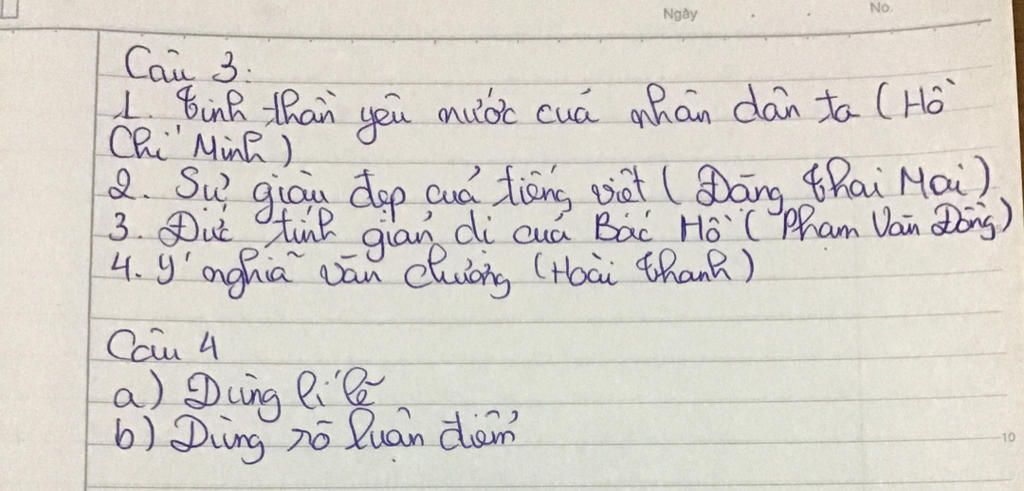 Ngày No.
Câu 3:
1. Tinh thần yêu nước của nhân dân ta (Hồ
Chí Minh)
2. Sự giàu đẹp của tiếng việt (Đặng Thai Mai)
3. Đức tính giản dị của Bác Hồ (Phạm Văn Đồng)
4. Ý nghĩa văn chương (Hoài Thanh)
Câu 4
a) Dùng lí lẽ
b) Dùng rõ luận điểm
10